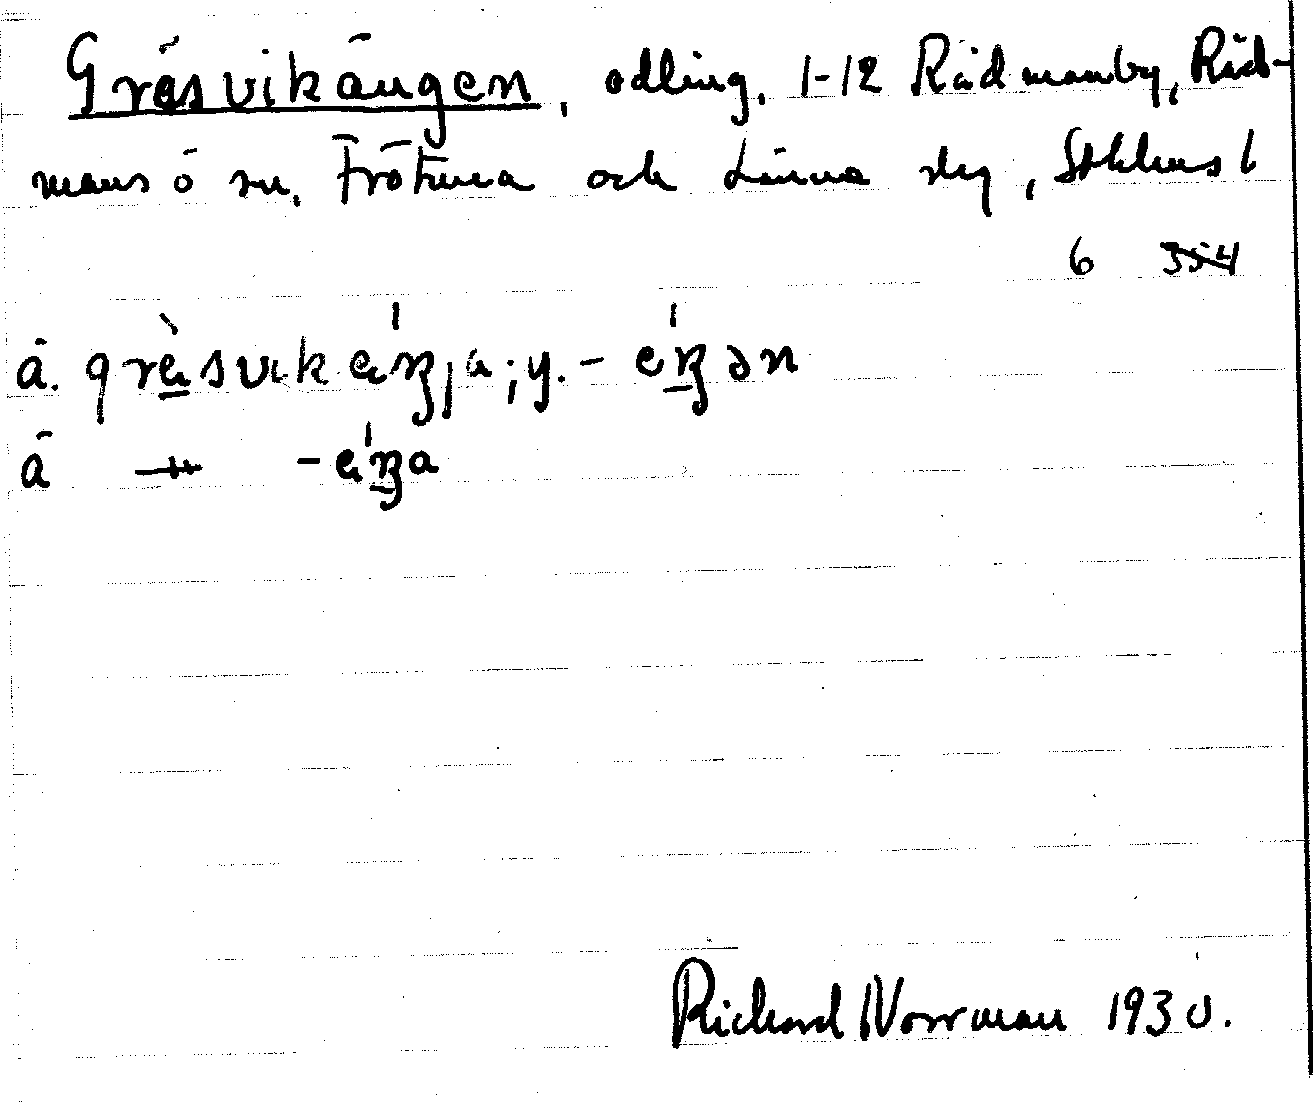 Gräsvikängen, odling, 1-12 Rådmanby, Råd-
mansö sn, Frötuna och Länna slg, Sthlms l
6 354
ä. gräsvikäŋja; y. - eŋən
ä -"- -äŋa
Richard Norrman 1930.